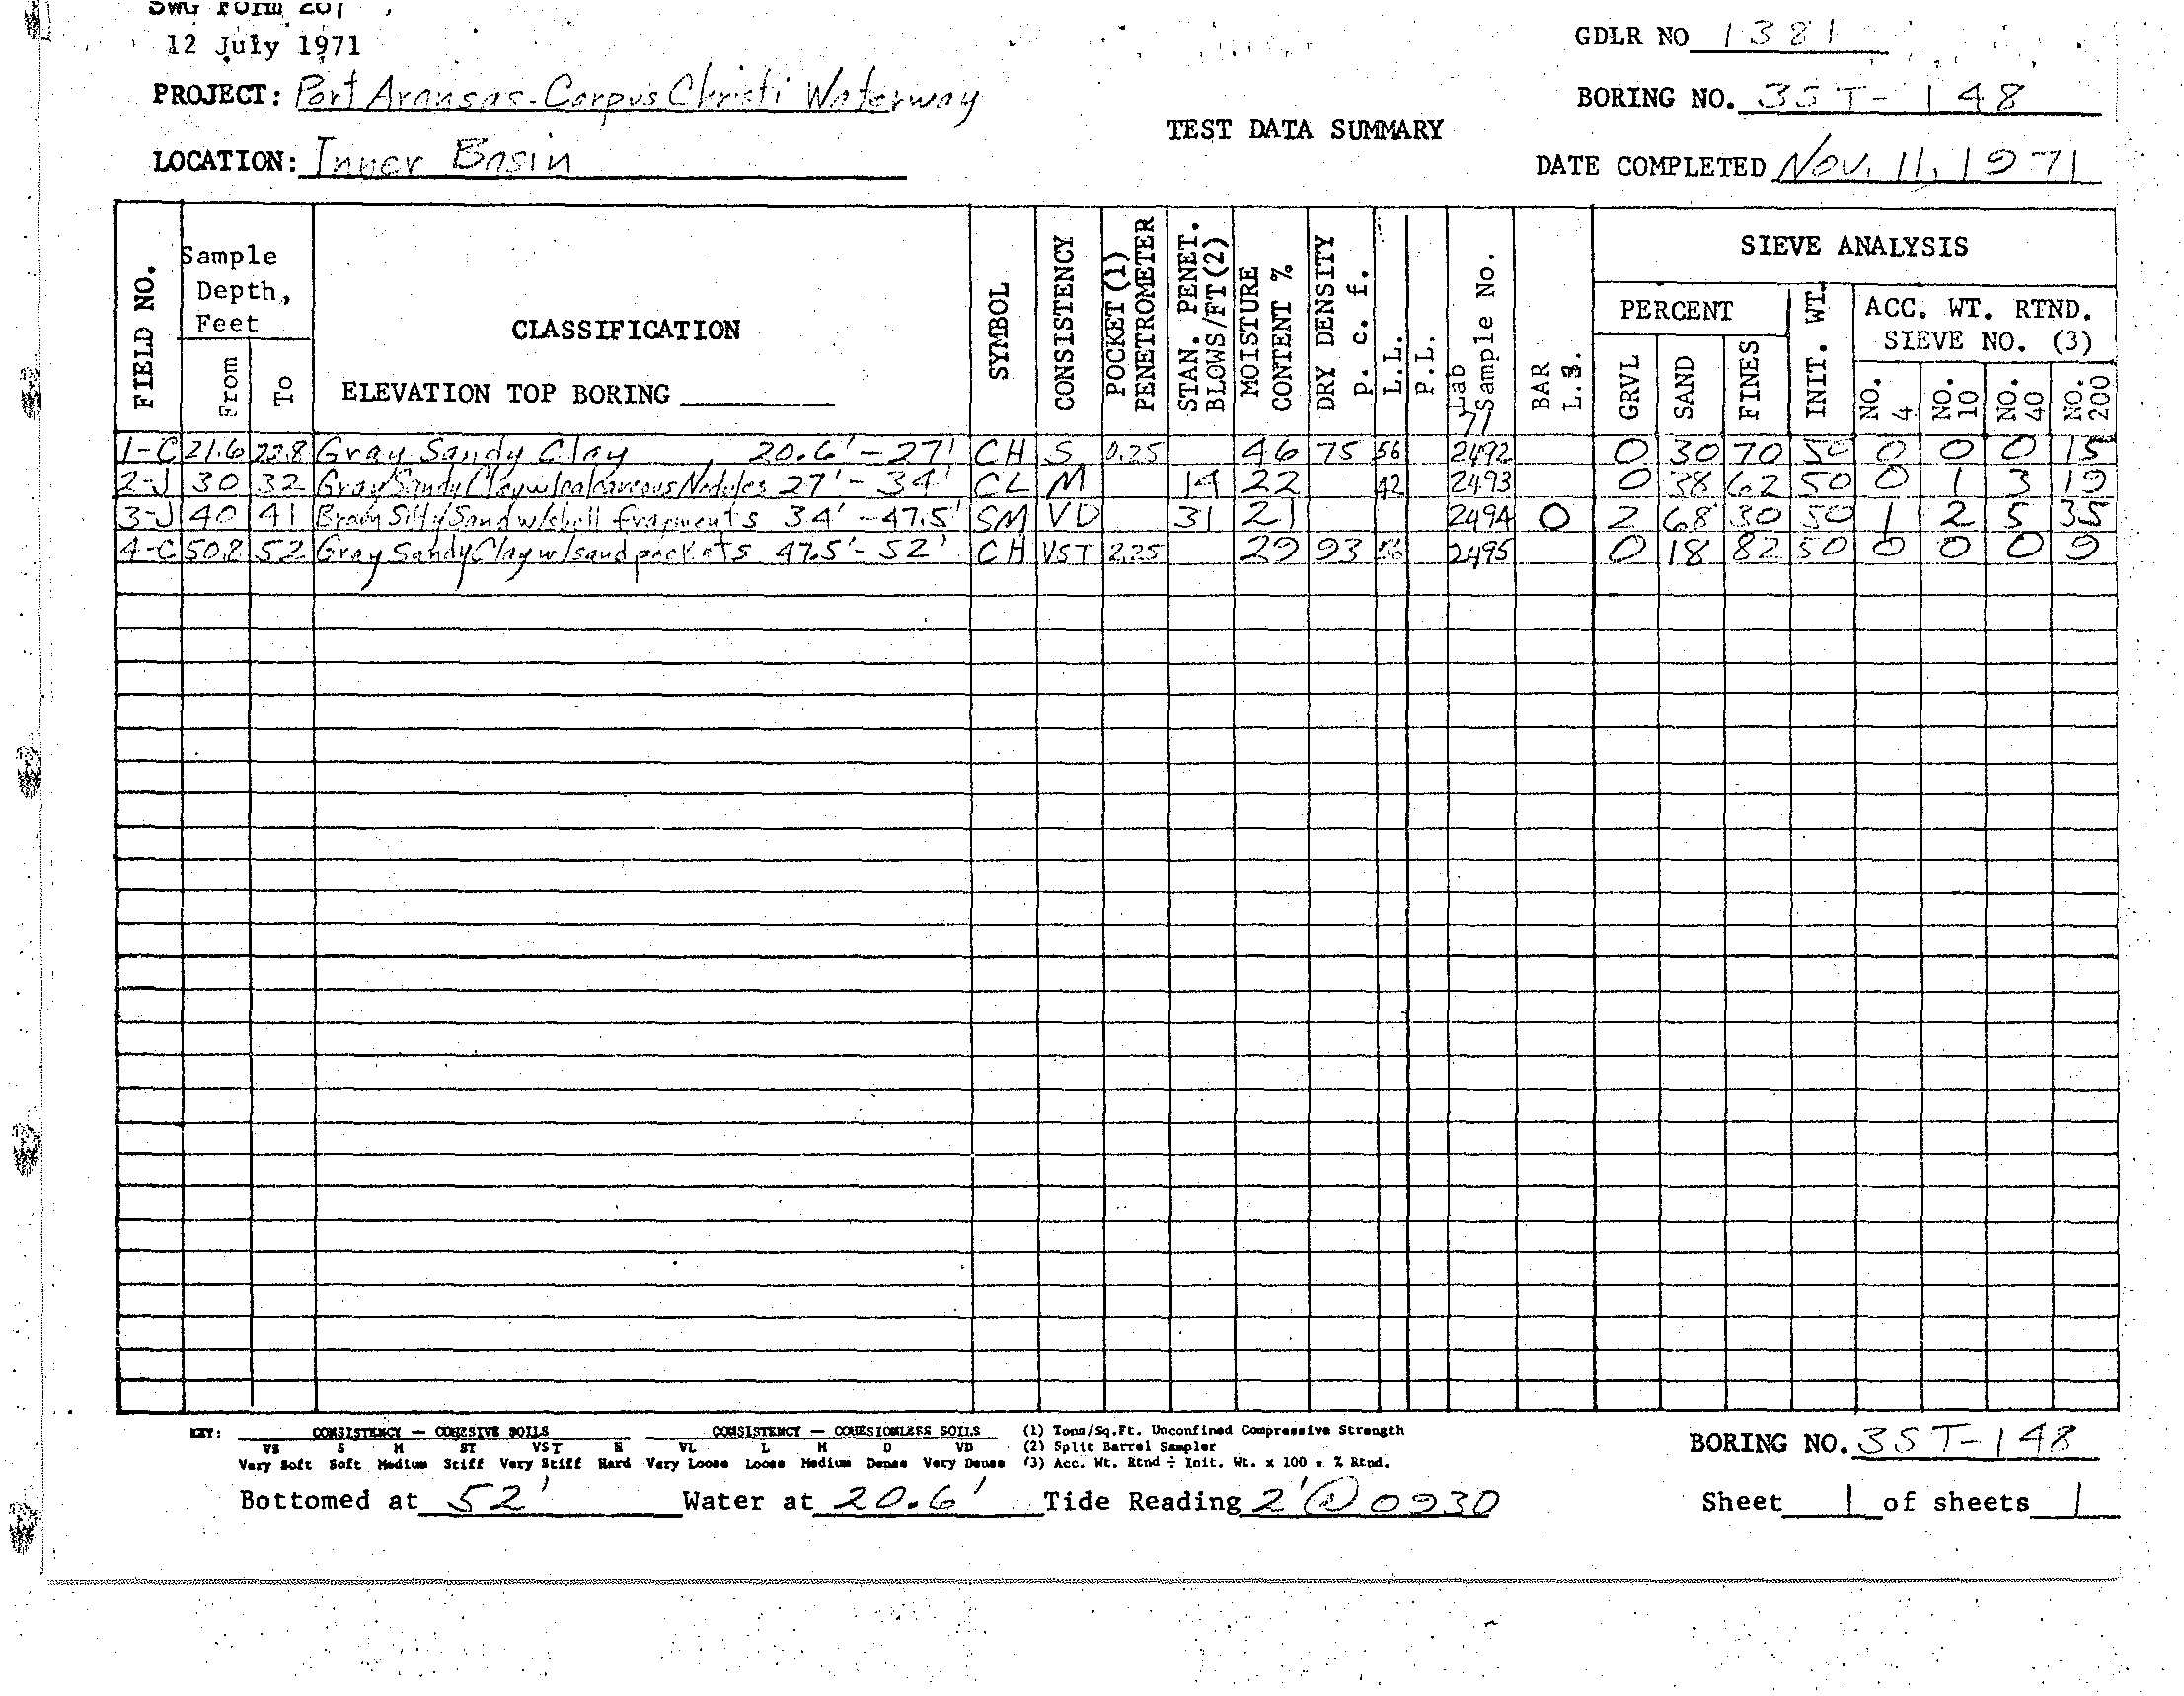 SWG Form 207
12 July 1971
GDLR NO 1381
PROJECT: Port Aransas-Corpus Christi Waterway
BORING NO. 3ST-148
TEST DATA SUMMARY
LOCATION: Inner Basin
DATE COMPLETED Nov. 11, 1971
FIELD NO.
Sample Depth, Feet
From
To
CLASSIFICATION
ELEVATION TOP BORING
SYMBOL
CONSISTENCY
POCKET (1) PENETROMETER
STAN. PENET. BLOWS/FT (2)
MOISTURE CONTENT %
DRY DENSITY p. c. f.
L.L.
P.L.
Lab Sample No.
71
BAR L.S.
SIEVE ANALYSIS
PERCENT
GRVL
SAND
FINES
INIT. WT.
ACC. WT. RTND.
SIEVE NO. (3)
NO. 4
NO. 10
NO. 40
NO. 200
1-C 21.6 22.8 Gray Sandy Clay 20.6' - 27' CH S 0.25 46 75 56 2492 0 30 70 50 0 0 0 15
2-J 30 32 Gray Sandy Clay w/calcareous Nodules 27' - 34' CL M 14 22 42 2493 0 38 62 50 0 1 3 19
3-J 40 41 Brown Silty Sand w/shell fragments 34' - 47.5' SM VD 31 21 2494 0 2 68 30 50 1 2 5 35
4-C 50.8 52 Gray Sandy Clay w/sand pockets 47.5' - 52' CH VST 2.25 29 93 56 2495 0 18 82 50 0 0 0 9
KEY: CONSISTENCY — COHESIVE SOILS CONSISTENCY — COHESIONLESS SOILS (1) Tons/Sq.Ft. Unconfined Compressive Strength
VS S M ST VST H VL L M D VD (2) Split Barrel Sampler
Very Soft Soft Medium Stiff Very Stiff Hard Very Loose Loose Medium Dense Very Dense (3) Acc. Wt. Rtnd ÷ Init. Wt. x 100 = % Rtnd.
BORING NO. 3ST-148
Bottomed at 52' Water at 20.6' Tide Reading 2' @ 0930 Sheet 1 of sheets 1